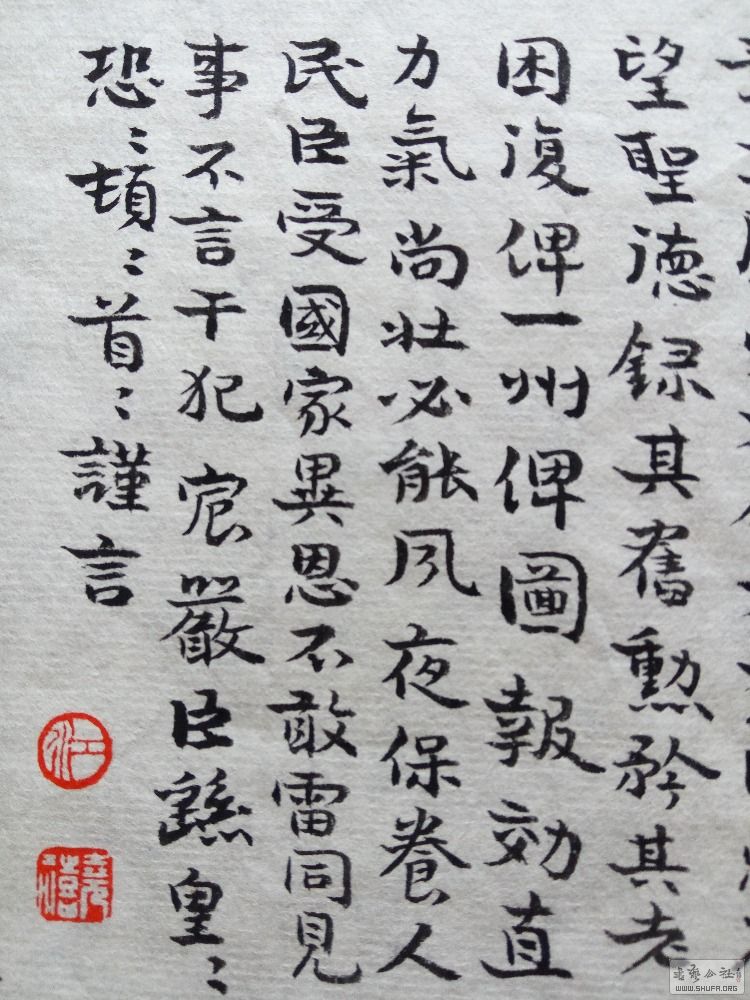 望聖德録其舊勳矜其老
困復俾一州俾圖報効直
力氣尚壯必能夙夜保養人
民臣受國家異恩不敢雷同見
事不言干犯宸嚴臣繇皇〻
恐〻頓〻首〻謹言
書藝公社
WWW.SHUFA.ORG